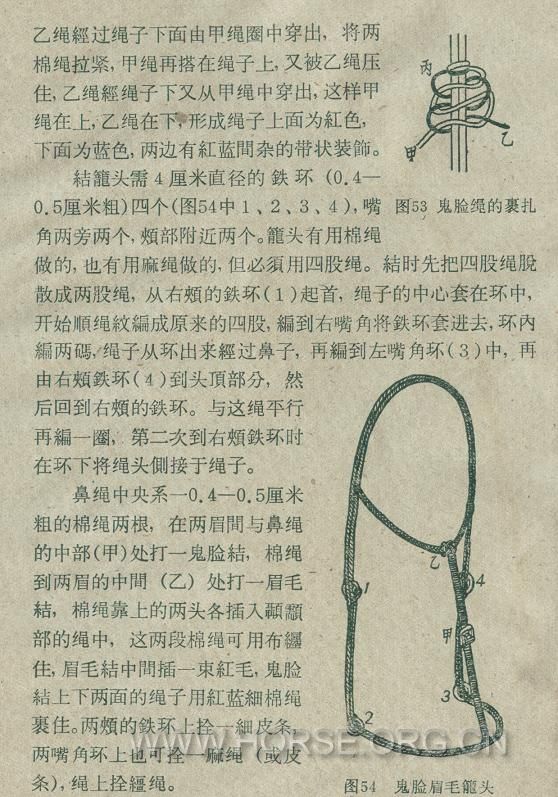 乙绳經过绳子下面由甲绳圈中穿出，将两
棉绳拉紧，甲绳再搭在绳子上，又被乙绳压
住，乙绳經绳子下又从甲绳中穿出，这样甲
绳在上，乙绳在下，形成绳子上面为紅色，
下面为蓝色，两边有紅蓝間杂的带状装飾。
結籠头需4厘米直径的鉄环（0.4—
0.5厘米粗）四个（图54中1、2、3、4），嘴
角两旁两个，頰部附近两个。籠头有用棉绳
丙
乙
甲
图53 鬼脸绳的裹扎
做的，也有用麻绳做的，但必須用四股绳。結时先把四股绳脫
散成两股绳，从右頰的鉄环（1）起首，绳子的中心套在环中，
开始順绳紋編成原来的四股，編到右嘴角将鉄环套进去，环内
編两碼，绳子从环出来經过鼻子，再編到左嘴角环（3）中，再
由右頰鉄环（4）到头頂部分，然
后回到右頰的鉄环。与这绳平行
再編一圈，第二次到右頰鉄环时
在环下将绳头側接于绳子。
鼻绳中央系一0.4—0.5厘米
粗的棉绳两根，在两眉間与鼻绳
的中部（甲）处打一鬼脸結，棉绳
到两眉的中間（乙）处打一眉毛
結，棉绳靠上的两头各插入顳顬
部的绳中，这两段棉绳可用布纏
住，眉毛結中間插一束紅毛，鬼脸
結上下两面的绳子用紅蓝細棉绳
裹住。两頰的鉄环上拴一細皮条，
两嘴角环上也可拴一麻绳（或皮
条），绳上拴繮绳。
乙
1
4
甲
3
2
图54 鬼脸眉毛籠头
WWW.HORSE.ORG.CN